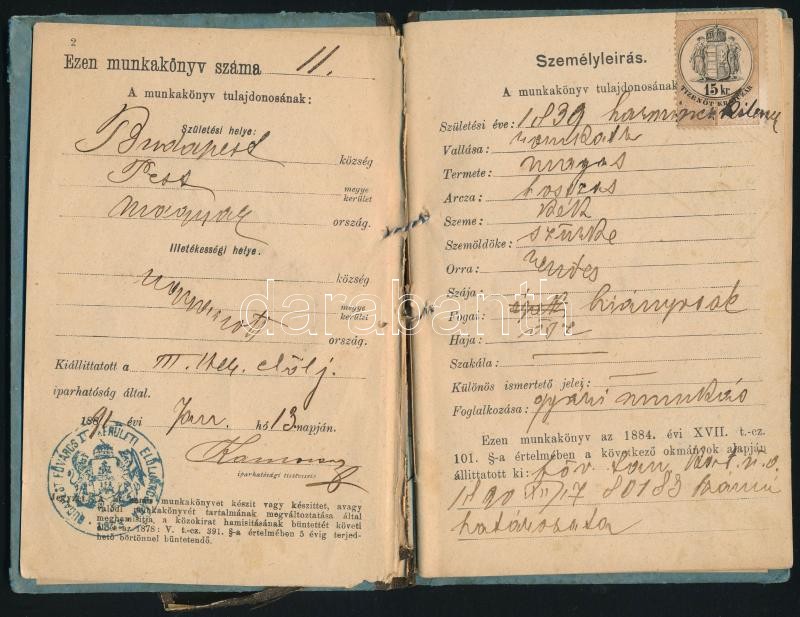 2
Ezen munkakönyv száma 11.
A munkakönyv tulajdonosának:
Születési helye:
Budapest község
Pest megye kerület
Magyar ország.
Illetékességi helye:
község
ugyanott megye kerület
ország.
Kiállittatott a III. ker. előlj.
iparhatóság által.
1891 évi Jan. hó 13 napján.
iparhatósági tisztviselő.
BUDAPEST FŐVÁROS KERÜLETI
munkakönyvet készit vagy készittet, avagy
valódi munkakönyvét tartalmának megváltoztatása által
meghamisitja, a közokirat hamisitásának büntettét követi
az 1878: V. t.-cz. 391. §-a értelmében 5 évig terjed-
hető börtönnel büntetendő.
Személyleirás.
15 kr.
TIZENÖT KRAJCZÁR
A munkakönyv tulajdonosának
Születési éve: 1839 harminczkilencz
Vallása: rom kath
Termete: magas
Arcza: hosszas
Szeme: kék
Szemöldöke: szürke
Orra: rendes
Szája: "
Fogai: hiányosak
Haja: ősz
Szakála:
Különös ismertető jelei:
Foglalkozása: gyári munkás
Ezen munkakönyv az 1884. évi XVII. t.-cz.
101. §-a értelmében a következő okmányok alapján
állittatott ki: főv. tan.
1890 XII/17 80183 számú
határozata
darabanth